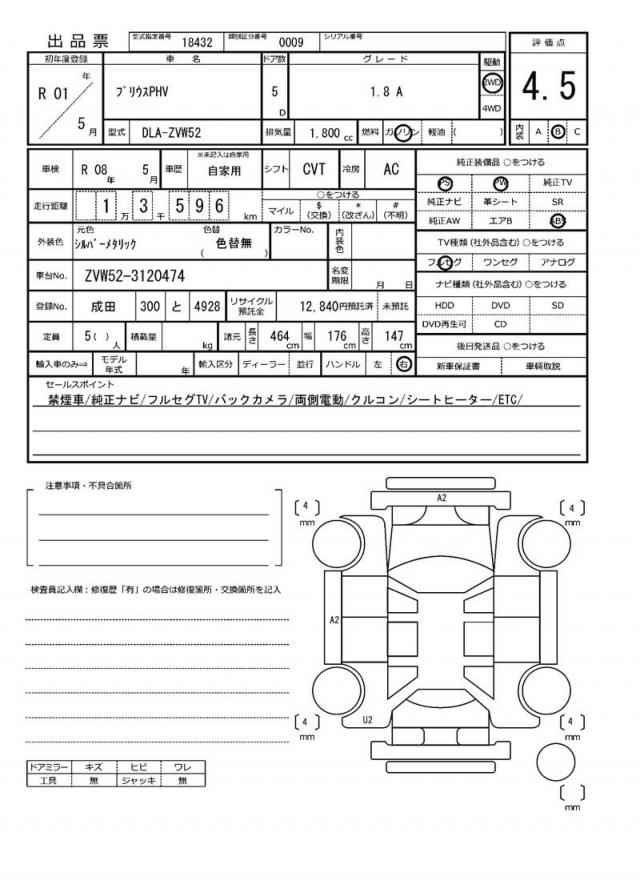 出品票
型式指定番号 18432 類別区分番号 0009 シリアル番号
初年度登録 車名 ドア数 グレード 駆動 評価点
R 01 年 5 月 ﾌﾟﾘｳｽPHV 5 D 1.8 A 2WD 4WD 4.5
型式 DLA-ZVW52 排気量 1,800 cc 燃料 ガソリン 軽油 ( ) 内装 A B C
車検 R 08 年 5 月 車歴 ※未記入は自家用 自家用 シフト CVT 冷房 AC
純正装備品 ○をつける
PS PW 純正TV
純正ナビ 革シート SR
純正AW エアB ABS
走行距離 1 万 3 千 5 9 6 km
○をつける
マイル $ (交換) * (改ざん) # (不明)
外装色 元色 ｼﾙﾊﾞｰﾒﾀﾘｯｸ 色替 ( 色替無 ) カラーNo. 内装色
TV種類 (社外品含む) ○をつける
フルセグ ワンセグ アナログ
車台No. ZVW52-3120474 名変期限 月 日
ナビ種類 (社外品含む) ○をつける
HDD DVD SD
DVD再生可 CD
登録No. 成田 300 と 4928 リサイクル預託金 12,840円預託済 未預託
定員 5 ( ) 人 積載量 kg 諸元 長さ 464 cm 幅 176 cm 高さ 147 cm
後日発送品 ○をつける
新車保証書 車輌取説
輸入車のみ⇒ モデル年式 年 輸入区分 ディーラー 並行 ハンドル 左 右
セールスポイント
禁煙車/純正ナビ/フルセグTV/バックカメラ/両側電動/クルコン/シートヒーター/ETC/
注意事項・不具合箇所
検査員記入欄：修復歴「有」の場合は修復箇所・交換箇所を記入
A2
〔 4 〕 mm
〔 4 〕 mm
A2
U2
〔 4 〕 mm
〔 4 〕 mm
〔 〕 mm
ドアミラー キズ ヒビ ワレ
工具 無 ジャッキ 無